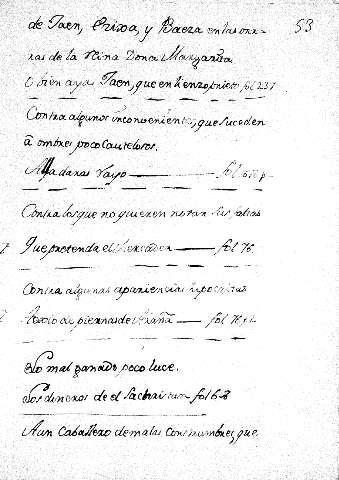 53
de Jaen, Ubeda, y Baeza en las onr-
ras de la Reina Dona Margarita
O bien aya Jaen, que en lienzo prieto fol 237
Contra algunos inconvenientes, que suceden
a ombres poco cautelosos.
Alla daras rayo fol
Contra los que no quieren notar sus faltas
Que pretenda el Mercader fol 76.
Contra algunas apariencias ipocritas
Tercio de piernas de Araña fol 76
Lo mal ganado poco luce.
Los dineros de el Sachristan fol 68
A un Caballero de malas constumbres, que